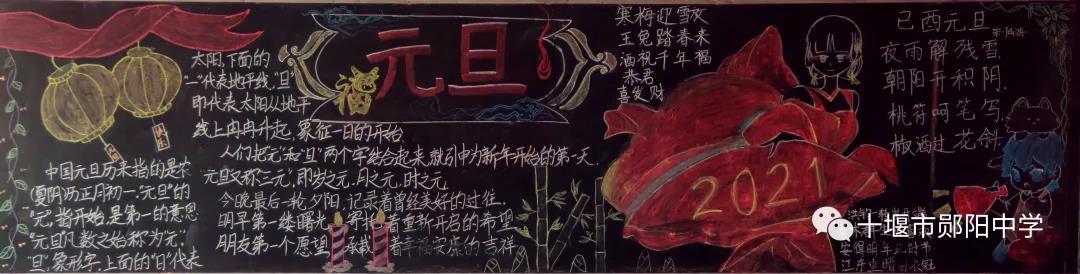 元旦
中国元旦历来指的是农
(夏阴)历正月初一。"元旦"的
"元"，指开始，是第一的意思
"元旦凡数之始称为"元"，
旦"，象形字，上面的"日"代表
太阳，下面的
"一"代表地平线。"旦"
即代表太阳从地平
线上冉冉升起，象征一日的开始
人们把"元"和"旦"两个字结合起来，就引申为新年开始的第一天.
"元旦又称"三元"，即岁之元、月之元、时之元.
今晚最后一轮夕阳，记录着曾经美好的过往，
明早第一缕曙光，寄托着重新开启的希望
朋友第一个愿望，承载着幸福安康的吉祥
寒梅迎雪放
玉兔踏春来
酒祝千年福
恭君
喜发财
2021
己酉元旦
夜雨解残雪
朝阳开积阴
桃符呵笔写
椒酒过花斜
安得明年
十堰市郧阳中学